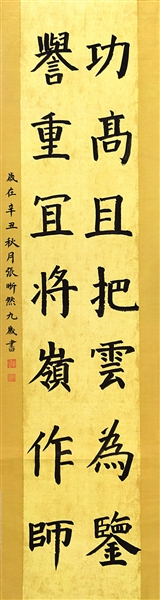 功高且把雲為鑒
譽重宜將嶺作師
歲在辛丑秋月張昕然九歲書